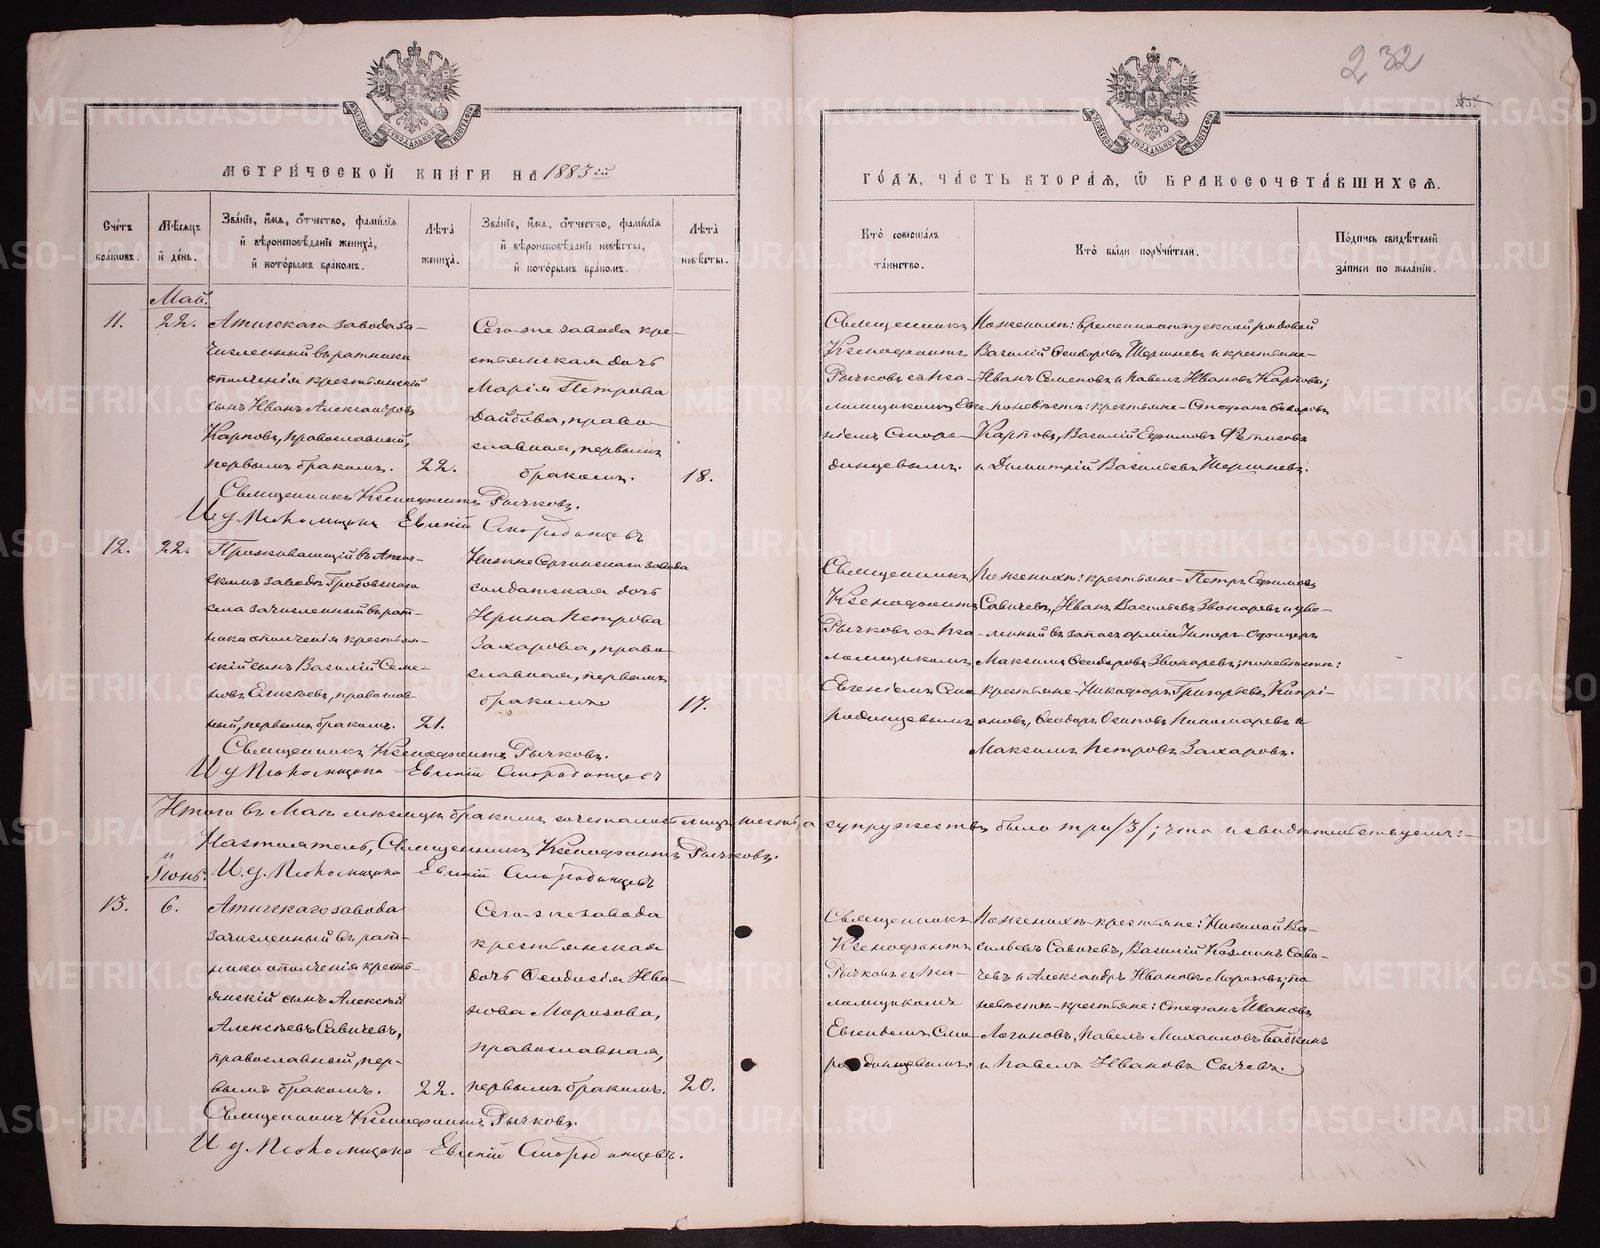 232
МЕТРИ́ЧЕСКОЙ КНИ́ГИ НА 1883 ій
ГО́ДЪ, ЧА́СТЬ ВТОРА́Я, Ѡ БРАКОСОЧЕТА́ВШИХСЯ.
Сче́тъ бра́ковъ.
Мѣ́сяцъ и де́нь.
Зва́ніе, и́мя, о́тчество, фами́лія и вѣроисповѣ́даніе жениха̀, и кото́рымъ бра́комъ.
Лѣта̀ жениха̀.
Зва́ніе, и́мя, о́тчество, фами́лія и вѣроисповѣ́даніе невѣ́сты, и кото́рымъ бра́комъ.
Лѣта̀ невѣ́сты.
Кто̀ соверша́лъ та́инство.
Кто̀ бы́ли поручи́тели.
По́дпись свидѣ́телей за́писи по жела́нію.
Май.
11.
22.
Атигскаго завода за-
численный въ ратники
ополченія крестьянскій
сынъ Иванъ Александровъ
Карповъ, православный,
первымъ бракомъ.
22.
Сего-же завода кре-
стьянская дочь
Марія Петрова
Дайбова, право-
славная, первымъ
бракомъ.
18.
Священникъ
Ксенофонтъ
Рычковъ съ пса-
ломщикомъ Евге-
ніемъ Сморо-
динцевымъ.
По женихѣ: временноотпускной рядовой
Василій Ѳеодоровъ Шершневъ и крестьяне-
Иванъ Семеновъ и Павелъ Ивановъ Карповы;
по невѣстѣ: крестьяне-Стефанъ Ѳедоровъ
Карповъ, Василій Ефимовъ Фетисовъ
и Димитрій Васильевъ Шершневъ.
Священникъ Ксенофонтъ Рычковъ.
И. д. Псаломщика Евгеній Смородинцевъ
12.
22.
Проживающій въ Атиг-
скомъ заводѣ Гробовскаго
села зачисленный въ рат-
ники ополченія крестьян-
скій сынъ Василій Семе-
новъ, православ-
ный, первымъ бракомъ.
21.
Нижне Сергинскаго завода
солдатская дочь
Ирина Петрова
Захарова, право-
славная, первымъ
бракомъ
17.
Священникъ
Ксенофонтъ
Рычковъ съ пса-
ломщикомъ
Евгеніемъ Смо-
родинцевымъ
По женихѣ: крестьяне-Петръ Ефимовъ
Савичевъ, Иванъ Васильевъ Звонаревъ и уво-
ленный въ запасъ арміи Унтеръ-Офицеръ
Максимъ Ѳеодоровъ Звонаревъ; по невѣстѣ:
крестьяне-Никифоръ Григорьевъ Кипрі-
ановъ, Ѳеодоръ Осиповъ Пономаревъ и
Максимъ Петровъ Захаровъ.
Священникъ Ксенофонтъ Рычковъ.
И д Псаломщика Евгеній Смородинцевъ
Итого въ Маѣ мѣсяцѣ бракомъ сочеталось лицъ шесть, а супружествъ было три /3/; что и свидѣтельствуемъ:-
Настоятель, Священникъ Ксенофонтъ Рычковъ.
И. д. Псаломщика Евгеній Смородинцевъ
Іюнь.
13.
6.
Атигскаго завода
зачисленный въ рат-
ники ополченія кресть-
янскій сынъ Алексѣй
Алексѣевъ Савичевъ,
православный, пер-
вымъ бракомъ.
22.
Сего-же завода
крестьянская
дочь Ѳеодосія Ива-
нова Морозова,
православная,
первымъ бракомъ.
20.
Священникъ
Ксенофонтъ
Рычковъ съ пса-
ломщикомъ
Евгеніемъ Смо-
родинцевымъ.
По женихѣ-крестьяне: Николай Ва-
сильевъ Савичевъ, Василій Козминъ Сави-
чевъ и Александръ Ивановъ Морозовъ; по
невѣстѣ-крестьяне: Стефанъ Ивановъ
Логиновъ, Павелъ Михаиловъ Бабкинъ
и Павелъ Ивановъ Сычевъ.
Священникъ Ксенофонтъ Рычковъ.
И д Псаломщика Евгеній Смородинцевъ.
METRIKI.GASO-URAL.RU